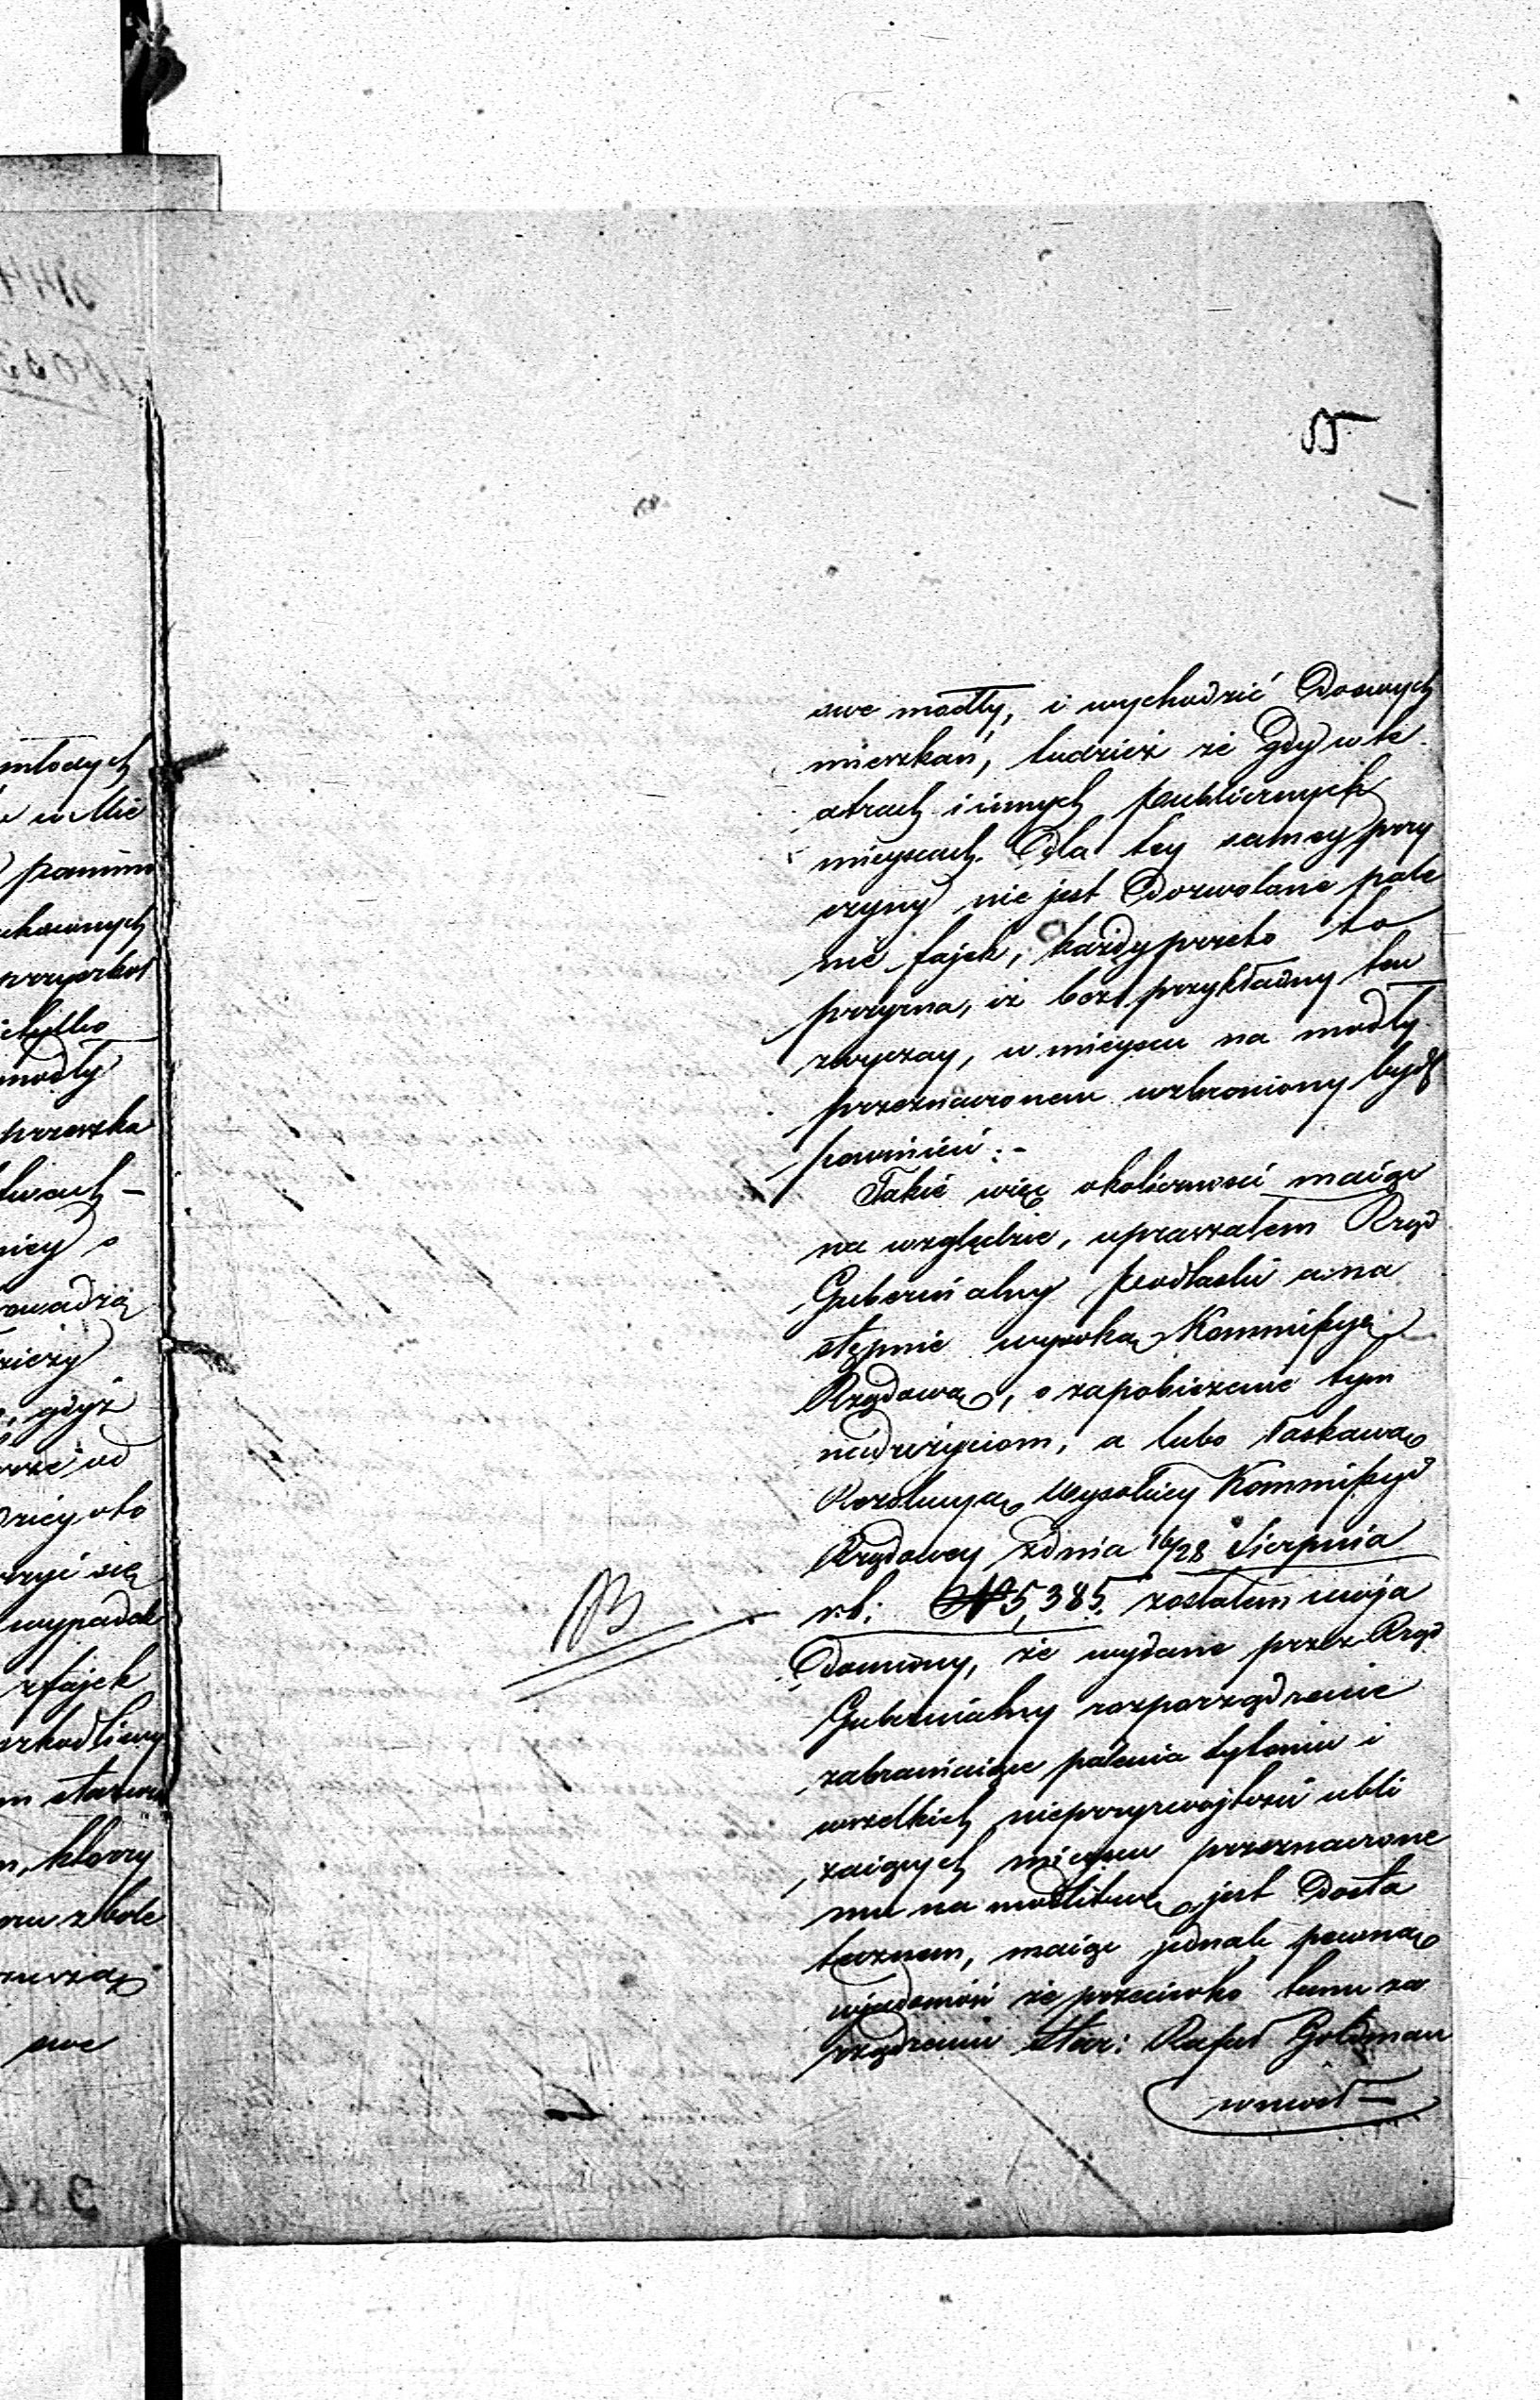 55
swe modły, i wychodzić Doswych
mieszkań, tudzież że gdy w te
atrach i innych publicznych
mieyscach. Dla tey samey przy
czyny nie jest Dozwolane pale
nie fajek, każdy przeto to
przyzna, iż bez przykładny ten
zwyczay, w mieyscu na modły
przeznaczonem wzbroniony bydź
powinien :-
Takie więc okoliczności maiąc
na względzie, upraszałem Rząd
Guberni alny Podlaski a na
stępnie wysoką Kommissyę
Rządową, o zapobieżenie tym
nadużyciom, a lubo łaskawą
Rezolucyą Wysokiey Kommissyi
Rządowey zdnia 16/28 Sierpnia
r.b. N 5,385. zostałem uwia
Domiony, że wydane przez Rząd
Gubernialny rozporządzenie
zabraniaiące palenia tytoniu i
wszelkich nieprzyzwoitości ubli
żaiących mieyscu przeznaczone
mu na modlitwę jest Dosta
tecznem, maiąc jednak pewną
wjadomość że przeciwko temu za
rządzeniu Star: Rafał Goldman
wniósł
młodych
w Mie
pomim
modły
przeszka
niey o
gdyż
rzyć się
wypadek
z fajek
szkodliwy
którzy
swe